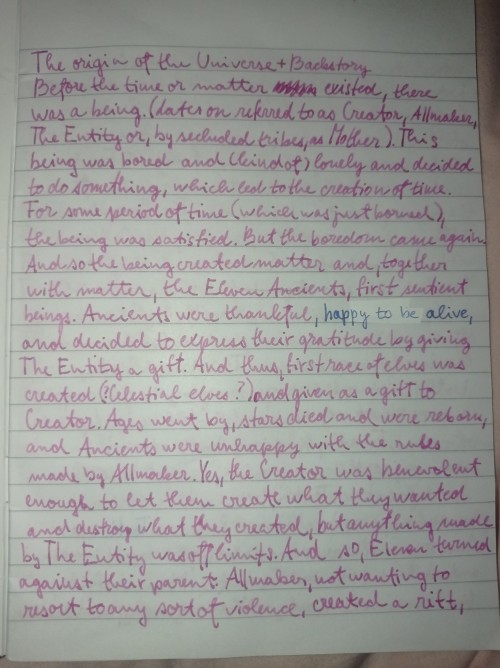 The origin of the Universe + Backstory
Before the time or matter existed, there
was a being. (later on referred to as Creator, Allmaker,
The Entity or, by secluded tribes, as Mother). This
being was bored and (kind of) lonely and decided
to do something, which led to the creation of time.
For some period of time (which was just borned),
the being was satisfied. But the boredom came again.
And so the being created matter and, together
with matter, the Eleven Ancients, first sentient
beings. Ancients were thankful, happy to be alive,
and decided to express their gratitude by giving
The Entity a gift. And thus, first race of elves was
created (?Celestial elves?) and given as a gift to
Creator. Ages went by, stars died and were reborn,
and Ancients were unhappy with the rules
made by Allmaker. Yes, the Creator was benevolent
enough to let them create what they wanted
and destroy what they created, but anything made
by The Entity was off limits. And so, Eleven turned
against their parent. Allmaker, not wanting to
resort to any sort of violence, created a rift,